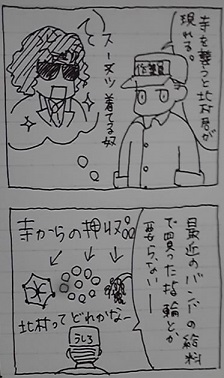 寺を襲うと北村君が
現れる。
スーツ着てる奴
最近のバンドの給料
で買った指輪とか
要らないー
寺からの押収品
北村ってどれかなー
うしろ